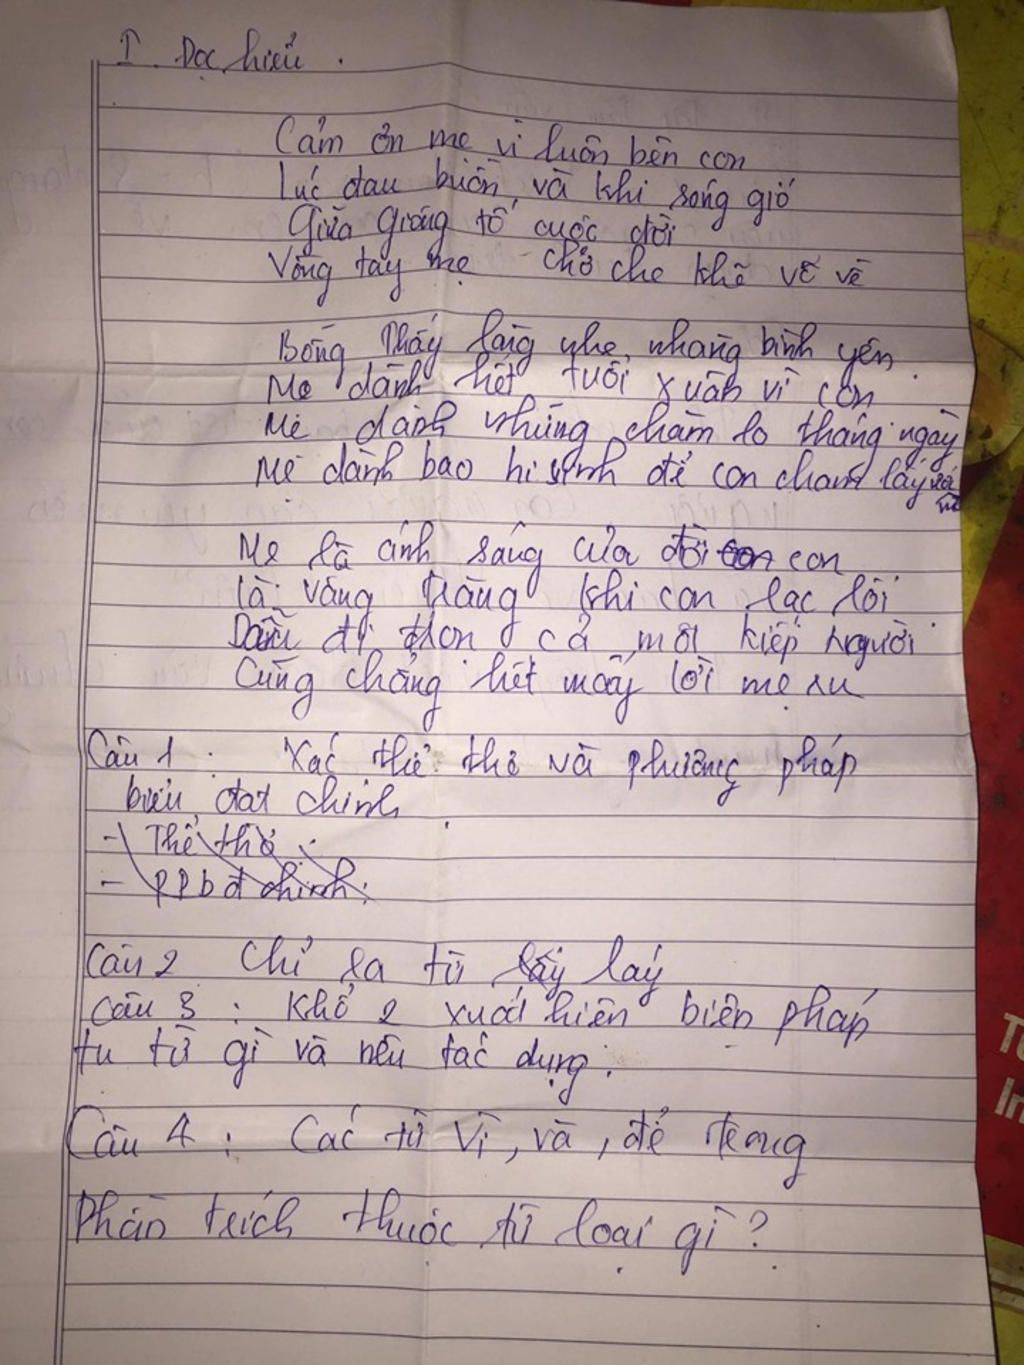 I. Đọc hiểu.
Cảm ơn mẹ vì luôn bên con
Lúc đau buồn và khi sóng gió
Giữa giông tố cuộc đời
Vòng tay mẹ chở che khẽ vỗ về
Bỗng thấy lòng nhẹ nhàng bình yên
Mẹ dành hết tuổi xuân vì con
Mẹ dành những chăm lo tháng ngày
Mẹ dành bao hi sinh để con chạm lấy
Mẹ là ánh sáng của đời con
Là vầng trăng khi con lạc lối
Dẫu đi trọn cả một kiếp người
Cũng chẳng hết mấy lời mẹ ru
Câu 1: Xác thể thơ và phương pháp
biểu đạt chính
- Thể thơ:
- PPbđ chính:
Câu 2 Chỉ ra từ lấy láy
Câu 3: Khổ 2 xuất hiện biện pháp
tu từ gì và nêu tác dụng.
Câu 4: Các từ Vì, và, để trong
Phần trích thuộc từ loại gì?
Tu
In